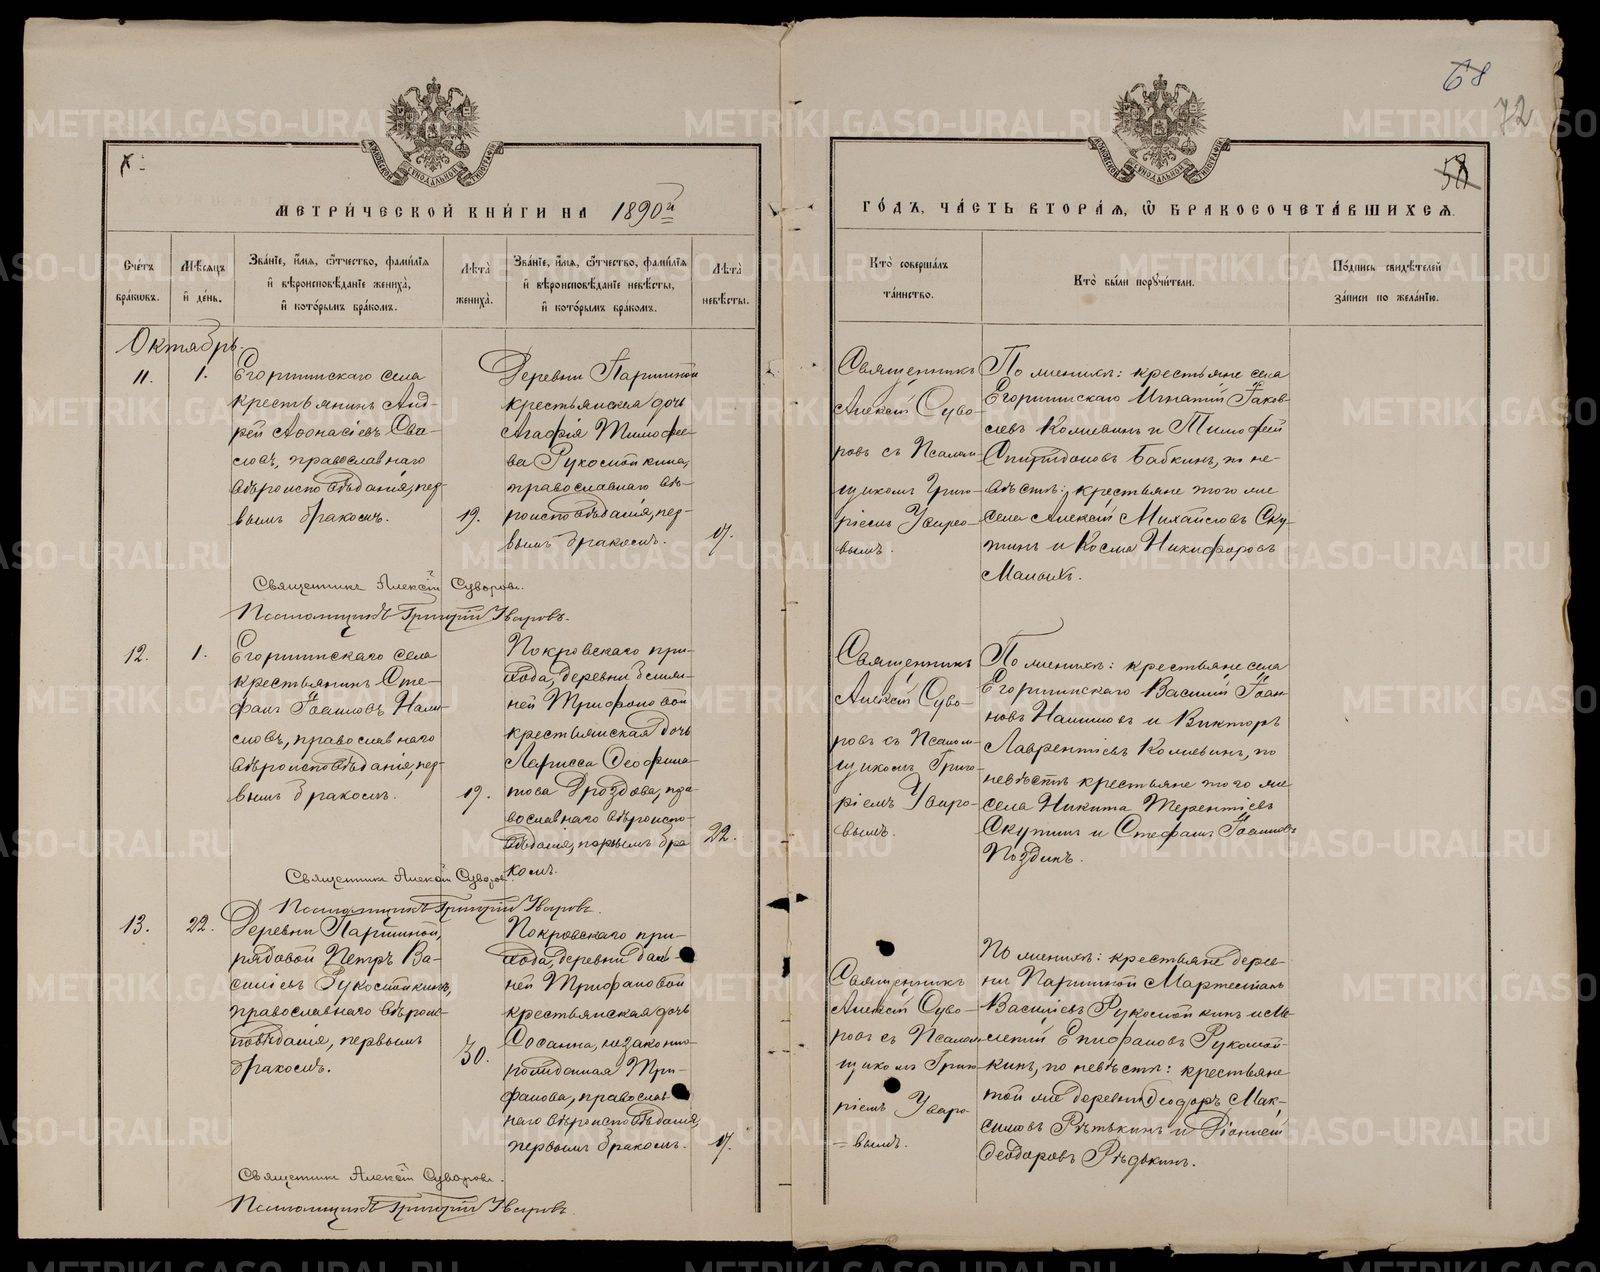 68
72
58
МЕТРИ́ЧЕСКОЙ КНИ́ГИ НА 1890й
ГО́ДЪ, ЧА́СТЬ ВТОРА́Я, Ѡ҆ БРАКОСОЧЕТА́ВШИХСЯ.
Сче́тъ бра́ковъ.
Мѣ́сяцъ и҆ де́нь.
Зва́нїе, и҆́мя, ѻ҆́тчество, фами́лїя
и҆ вѣроисповѣ́данїе жениха̀,
и҆ кото́рымъ бра́комъ.
Лѣ́та жениха̀.
Зва́нїе, и҆́мя, ѻ҆́тчество, фами́лїя
и҆ вѣроисповѣ́данїе невѣ́сты,
и҆ кото́рымъ бра́комъ.
Лѣ́та невѣ́сты.
Кто̀ соверша́лъ
та́инство.
Кто̀ бы́ли поручи́тели.
По́дпись свидѣ́телей
за́писи по жела́нїю.
Октябрь.
11.
1.
Егоршинскаго села
крестьянинъ Анд-
рей Аѳонасіевъ Сва-
ловъ, православнаго
вѣроисповѣданія, пер-
вымъ бракомъ.
19.
Деревни Паршиной
крестьянская дочь
Агафія Тимофее-
ва Рукомойкина,
православнаго вѣ-
роисповѣданія, пер-
вымъ бракомъ.
17.
Священникъ
Алексій Суво-
ровъ съ Псалом-
щикомъ Григо-
ріемъ Уваро-
вымъ.
По женихѣ: крестьяне села
Егоршинскаго Игнатій Іаков-
левъ Комивинъ и Тимофей
Спиридоновъ Бабкинъ, по не-
вѣстѣ: крестьяне того же
села Алексій Михаиловъ Ску-
тинъ и Косма Никифоровъ
Священникъ Алексій Суворовъ.
Псаломщикъ Григорій Уваровъ.
12.
1.
Егоршинскаго села
крестьянинъ Сте-
фанъ Іоанновъ Нали-
мовъ, православнаго
вѣроисповѣданія, пер-
вымъ бракомъ.
19.
Покровскаго при-
хода, деревни
ней Трифоновой
крестьянская дочь
Ларисса Ѳеофила-
това Дроздова, пра-
вославнаго вѣроиспо-
вѣданія, первымъ бра-
комъ.
22.
Священникъ
Алексій Суво-
ровъ съ Псалом-
щикомъ Григо-
ріемъ Уваро-
вымъ.
По женихѣ: крестьяне села
Егоршинскаго Василій Іоан-
новъ и Викторъ
Лаврентіевъ Комивинъ, по
невѣстѣ крестьяне того же
села Никита Терентіевъ
Скутинъ и Стефанъ Іоанновъ
Поздинъ.
Священникъ Алексій Суворовъ.
Псаломщикъ Григорій Уваровъ.
13.
22.
Деревни Паршиной,
рядовой Петръ Ва-
силіевъ Рукомойкинъ,
православнаго вѣроис-
повѣданія, первымъ
бракомъ.
30.
Покровскаго при-
хода, деревни Даль-
ней Трифановой
крестьянская дочь
Сосанна, незаконно-
рожденная Три-
фанова, православ-
наго вѣроисповѣданія,
первымъ бракомъ.
17.
Священникъ
Алексій Суво-
ровъ съ Псалом-
щикомъ Григо-
ріемъ Уваро-
=вымъ.
По женихѣ: крестьяне дерев-
ни Паршиной
Василіевъ Рукомойкинъ и
Епифановъ Рукомой-
кинъ, по невѣстѣ: крестьяне
той же деревни Ѳеодоръ Мак-
симовъ Рѣдькинъ и
Ѳеодоровъ Рѣдькинъ.
Священникъ Алексій Суворовъ.
Псаломщикъ Григорій Уваровъ.
METRIKI.GASO-URAL.RU